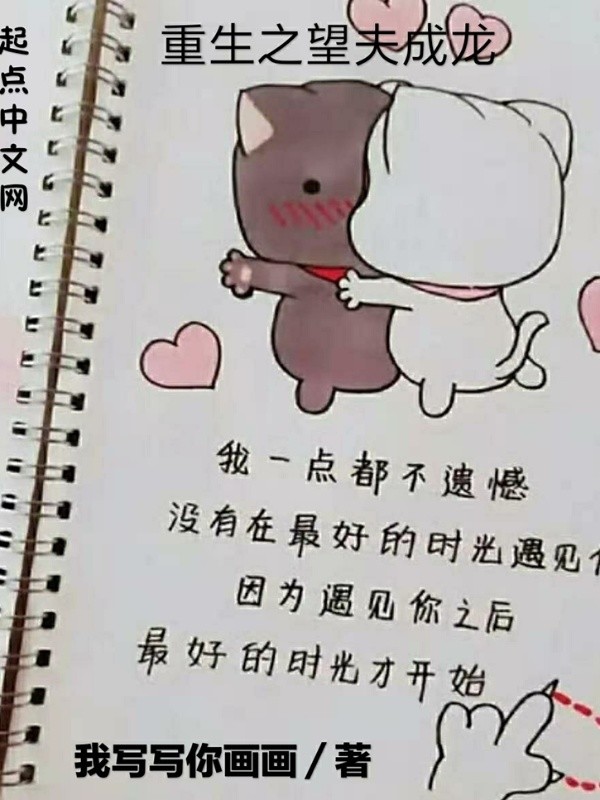 重生之望夫成龙
起点中文网
我一点都不遗憾
没有在最好的时光遇见
因为遇见你之后
最好的时光才开始
我写写你画画/著